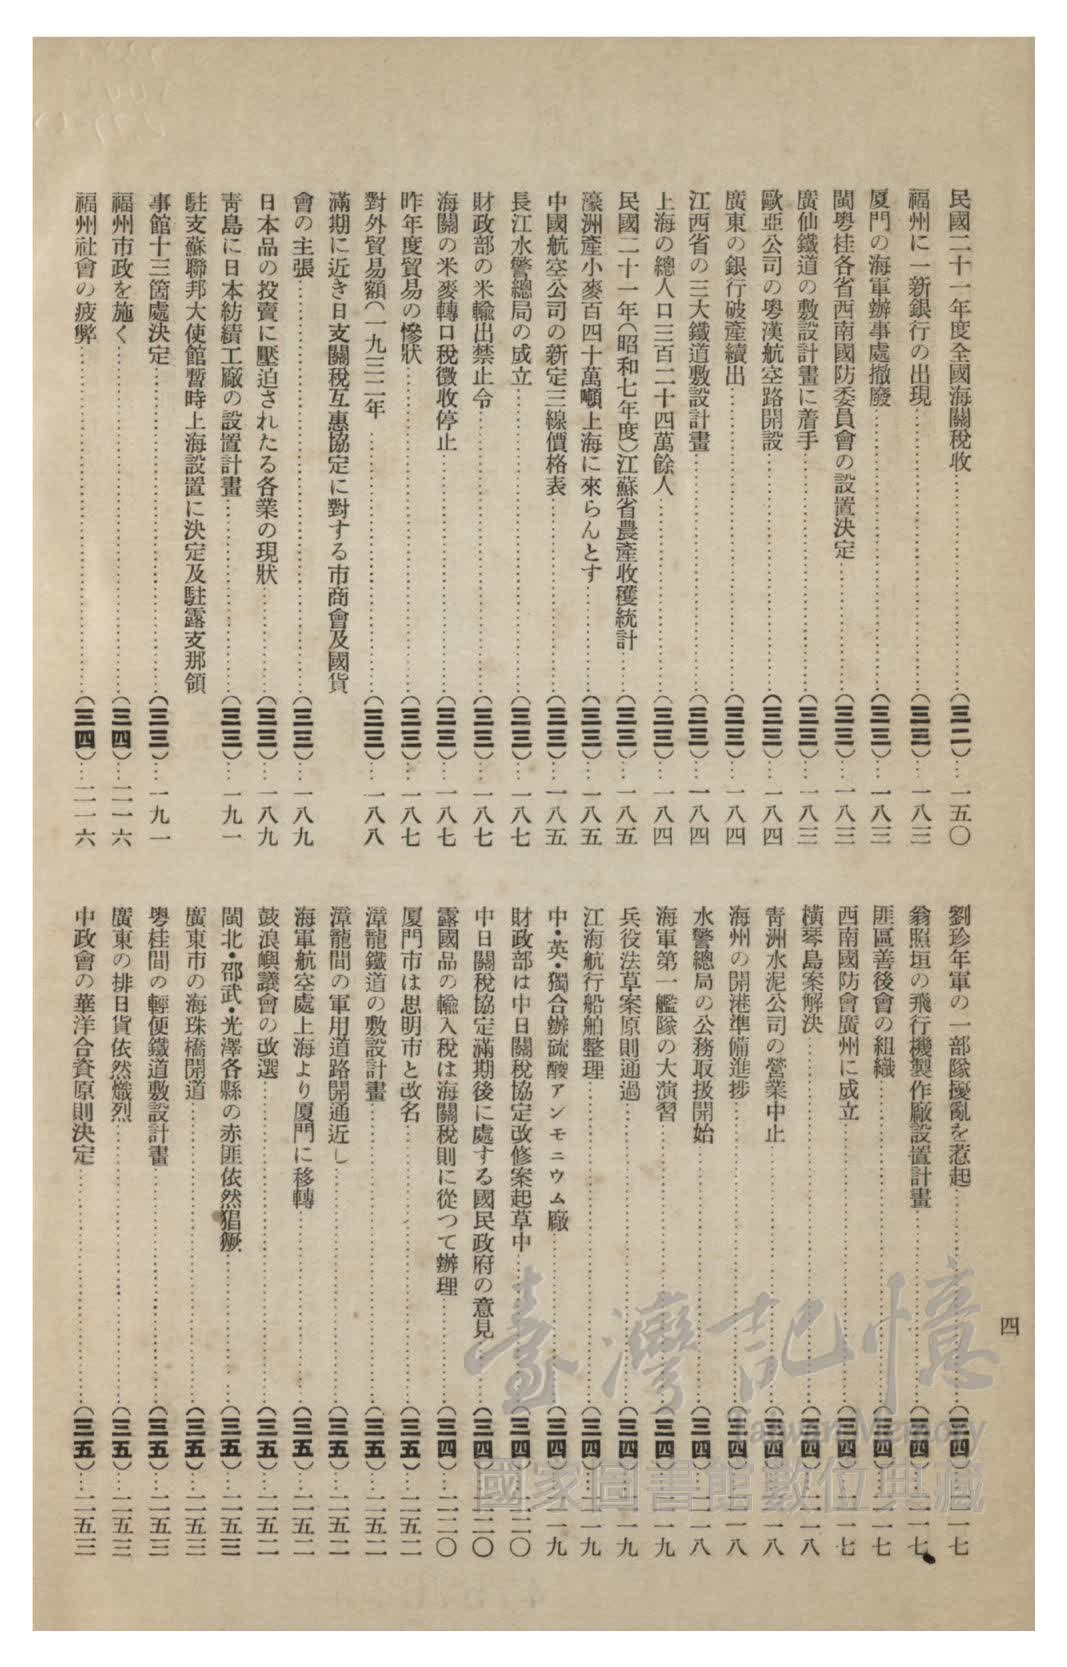 四
民國二十一年度全國海關稅收……（三二）…一五〇
福州に一新銀行の出現……（三三）…一八三
厦門の海軍辦事處撤廢……（三三）…一八三
閩粤桂各省西南國防委員會の設置決定……（三三）…一八三
廣仙鐵道の敷設計畫に着手……（三三）…一八三
歐亞公司の粤漢航空路開設……（三三）…一八四
廣東の銀行破產續出……（三三）…一八四
江西省の三大鐵道敷設計畫……（三三）…一八四
上海の總人口三百二十四萬餘人……（三三）…一八四
民國二十一年（昭和七年度）江蘇省農產收穫統計……（三三）…一八五
濠洲產小麥百四十萬噸上海に來らんとす……（三三）…一八五
中國航空公司の新定三線價格表……（三三）…一八五
長江水警總局の成立……（三三）…一八七
財政部の米輸出禁止令……（三三）…一八七
海關の米麥轉口稅徵收停止……（三三）…一八七
昨年度貿易の慘狀……（三三）…一八七
對外貿易額（一九三二年……（三三）…一八八
滿期に近き日支關稅互惠協定に對する市商會及國貨
會の主張……（三三）…一八九
日本品の投賣に壓迫されたる各業の現狀……（三三）…一八九
靑島に日本紡績工廠の設置計畫……（三三）…一九一
駐支蘇聯邦大使館暫時上海設置に決定及駐露支那領
事館十三箇處決定……（三三）…一九一
福州市政を施く……（三四）…二一六
福州社會の疲弊……（三四）…二一六
劉珍年軍の一部隊擾亂を惹起……（三四）…二一七
翁照垣の飛行機製作廠設置計畫……（三四）…二一七
匪區善後會の組織……（三四）…二一七
西南國防會廣州に成立……（三四）…二一七
橫琴島案解決……（三四）…二一八
靑洲水泥公司の營業中止……（三四）…二一八
海州の開港準備進捗……（三四）…二一八
水警總局の公務取扱開始……（三四）…二一八
海軍第一艦隊の大演習……（三四）…二一九
兵役法草案原則通過……（三四）…二一九
江海航行船舶整理……（三四）…二一九
中・英・獨合辦硫酸アンモニウム廠……（三四）…二一九
財政部は中日關稅協定改修案起草中……（三四）…二二〇
中日關稅協定滿期後に處する國民政府の意見……（三四）…二二〇
露國品の輸入稅は海關稅則に從つて辦理……（三四）…二二〇
厦門市は思明市と改名……（三五）…二五二
漳龍鐵道の敷設計畫……（三五）…二五二
漳龍間の軍用道路開通近し……（三五）…二五二
海軍航空處上海より厦門に移轉……（三五）…二五二
鼓浪嶼議會の改選……（三五）…二五二
閩北・邵武・光澤各縣の赤匪依然猖獗……（三五）…二五三
廣東市の海珠橋開道……（三五）…二五三
粤桂間の輕便鐵道敷設計畫……（三五）…二五三
廣東の排日貨依然熾烈……（三五）…二五三
中政會の華洋合資原則決定……（三五）…二五三
臺灣記憶
Taiwan Memory
國家圖書館數位典藏